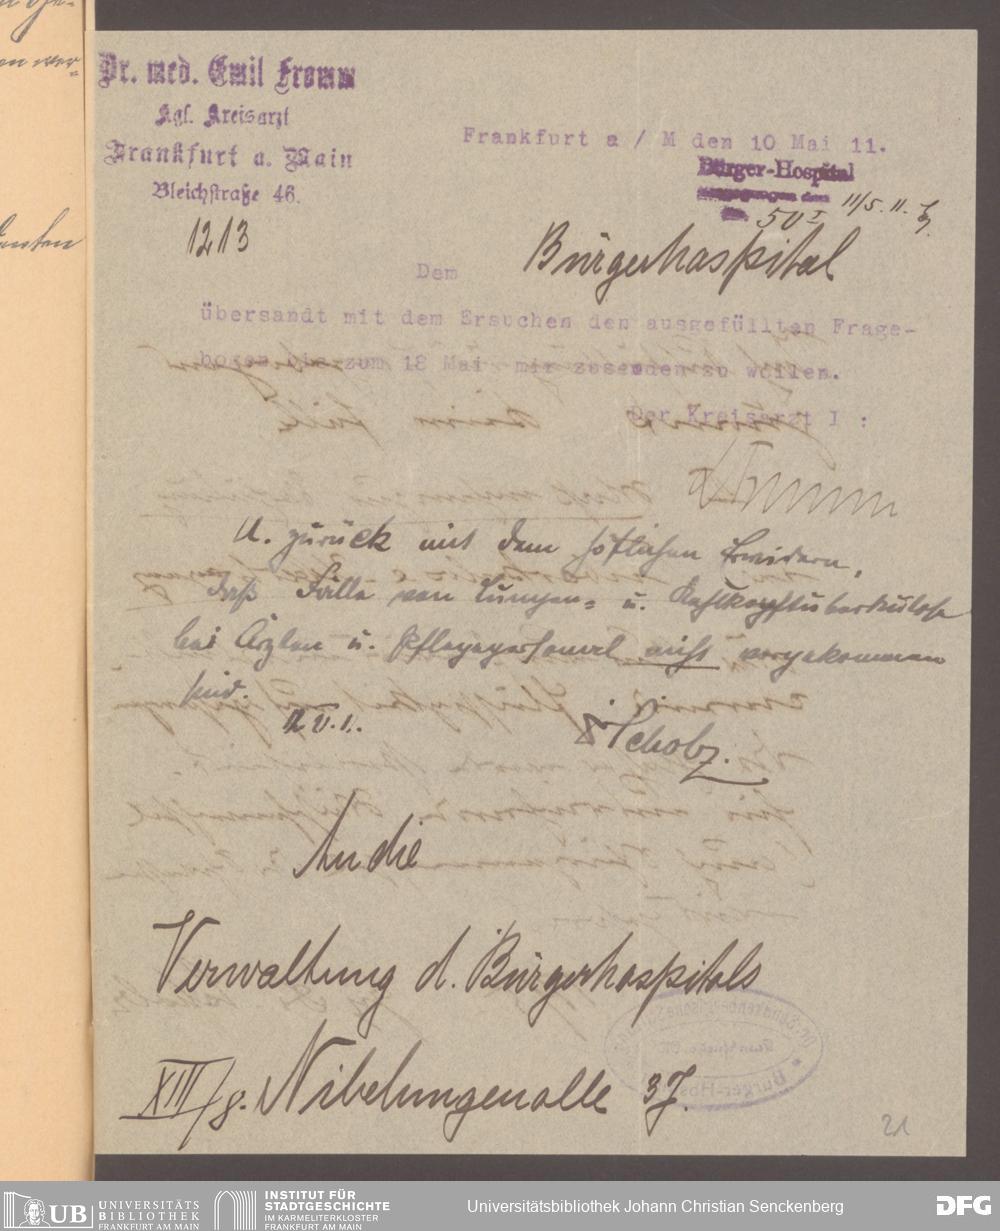 Dr. med. Emil Fromm
Kgl. Kreisarzt
Frankfurt a. Main
Bleichstraße 46.
1213
Frankfurt a / M den 10 Mai 11.
Bürger-Hospital
eingegangen den 11/5. 11.
No. 50 I
Dem Bürgerhospital
übersandt mit dem Ersuchen den ausgefüllten Frage-
bogen bis zum 18 Mai mir zusenden zu wollen.
Der Kreisarzt I :
Fromm
U. zurück mit dem höflichen Erwidern,
daß Fälle von Lungen- u. Kehlkopftuberkulose
bei Ärzten u. Pflegepersonal nicht vorgekommen
sind.
12 V. 11.
Scholz.
An die
Verwaltung d. Bürgerhospitals
XIII/8. Nibelungenalle 37.
21
UB UNIVERSITÄTS
BIBLIOTHEK
FRANKFURT AM MAIN
INSTITUT FÜR
STADTGESCHICHTE
IM KARMELITERKLOSTER
FRANKFURT AM MAIN
Universitätsbibliothek Johann Christian Senckenberg
DFG